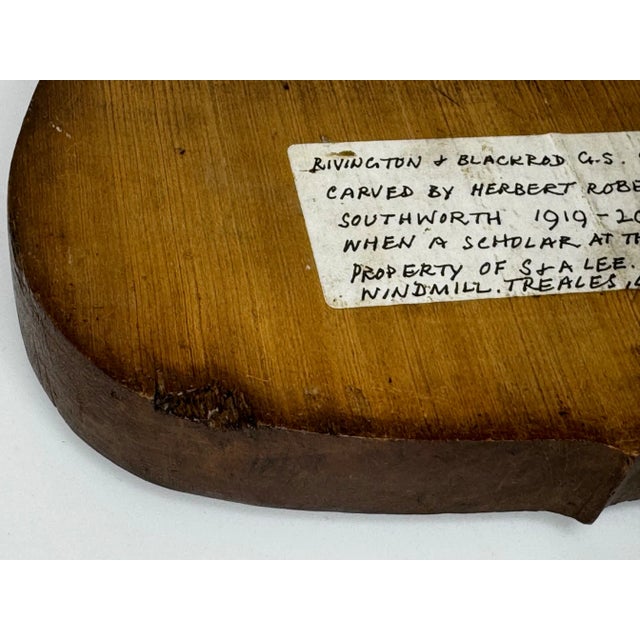 RIVINGTON & BLACKROD G.S.
CARVED BY HERBERT ROBE
SOUTHWORTH 1919-20
WHEN A SCHOLAR AT TH
PROPERTY OF S&A LEE.
WINDMILL. TREALES,